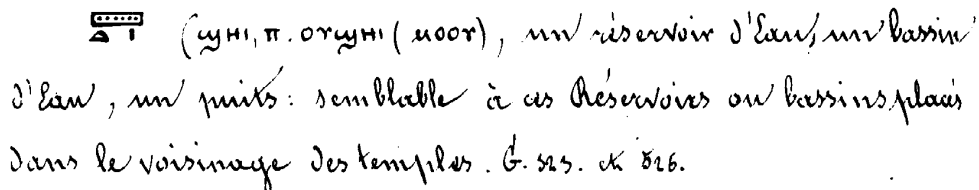 (ϣⲏⲓ, ⲡ. ⲟⲩϣⲏⲓ (ⲙⲟⲟⲩ), un réservoir d'Eau, un bassin
d'Eau, un puits: semblable à ces Réservoirs ou bassins placés
dans le voisinage des temples. G. 323. et 326.